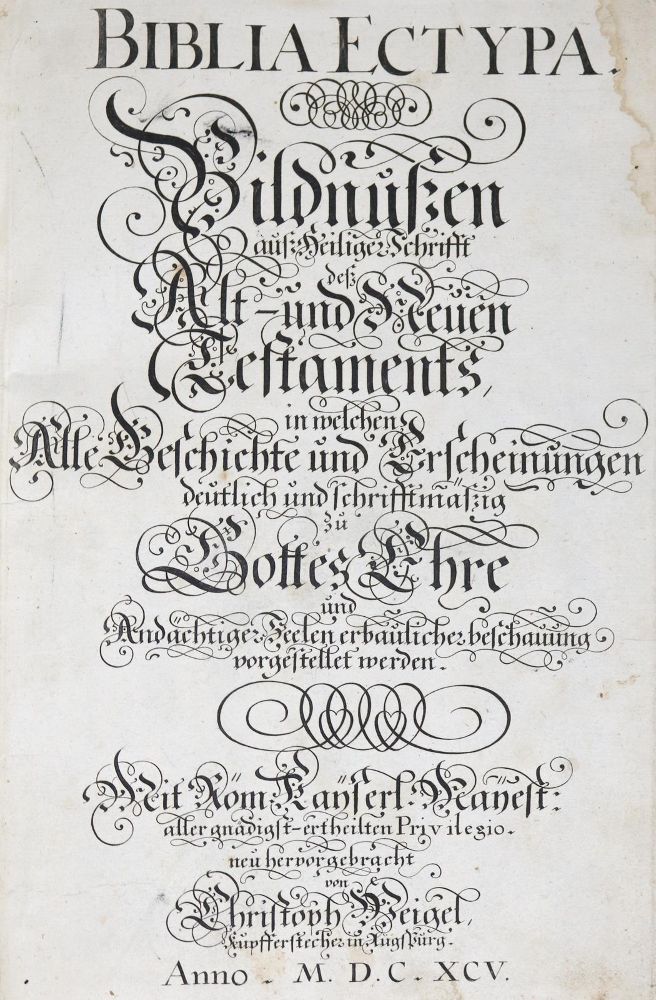 BIBLIA ECTYPA.
Bildnußen
auß Heiliger Schrifft
deß
Alt- und Neuen
Testaments,
in welchen
Alle Geschichte und Erscheinungen
deutlich und schrifftmäßig
zu
Gottes Ehre
und
Andächtiger Seelen erbaulicher beschauung
vorgestellet werden.
Mit Röm. Kayserl. Mayest:
aller gnädigst-ertheilten Privilegio.
neu hervorgebracht
von
Christoph Weigel,
Kupfferstecher in Augspurg.
Anno. M. D. C. XCV.